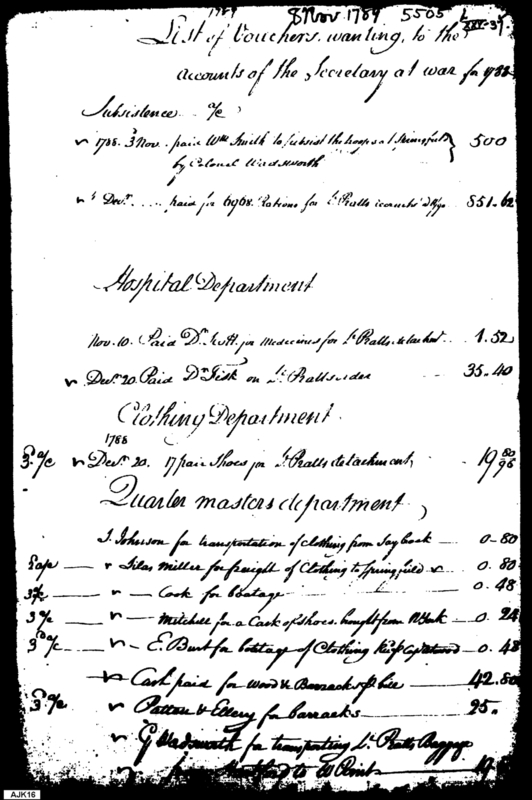 1789 8 Nov. 1789 5505
List of Vouchers wanting, to the
accounts of the Secretary at war for 1788
Subsistence a/c
1788. 3 Nov. paid Wm Smith to subsist the troops at Springfield } 500
by Colonel Wadsworth
Decr. .... paid for 6968 Rations for Lt Pratts 851.62
Hospital Department
Nov. 10. Paid Dr Scott for medicines for Lt Pratts detachmt 1.52
Decr. 20. Paid Dr Fisk on Lt Pratts order 35.40
Clothing Department
1788
Decr. 20. 17 pair Shoes for Lt Pratts detachment, 19 80/96
Quarter masters department
J. Johnson for transportation of clothing from Saybrook 0-80
Silas Miller for freight of Clothing to Springfield 0.80
Cook for boatage 0.48
Mitchell for a Cask of shoes bought from N York 0.24
E. Burt for boatage of Clothing 0.48
Cash paid for Wood & Barracks bill 42.80
Patton & Ellery for barracks 25.
G Wadsworth for transporting Lt Pratts Baggage
to W Point 19
AJK16